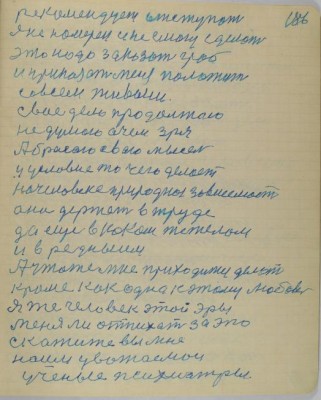 186
рекомендует отступат
я не помреи и не смогу сделат
это надо заказат гроб
и приказат меня положит
совсем живаем.
свае дело продолжаю
не думаю а чем зря
Абрасаю сваю мысел
и условие то чего делает
на человеке природная зависемаст
она держет в труде
да еще в каком тяжелом
и в редныем
А что же мне приходится делат
кроме как одна к этому любов
я же человек этой эры
меня ли отпихат за это
скажите вы мне
наши уважаемаи
ученые психиатры